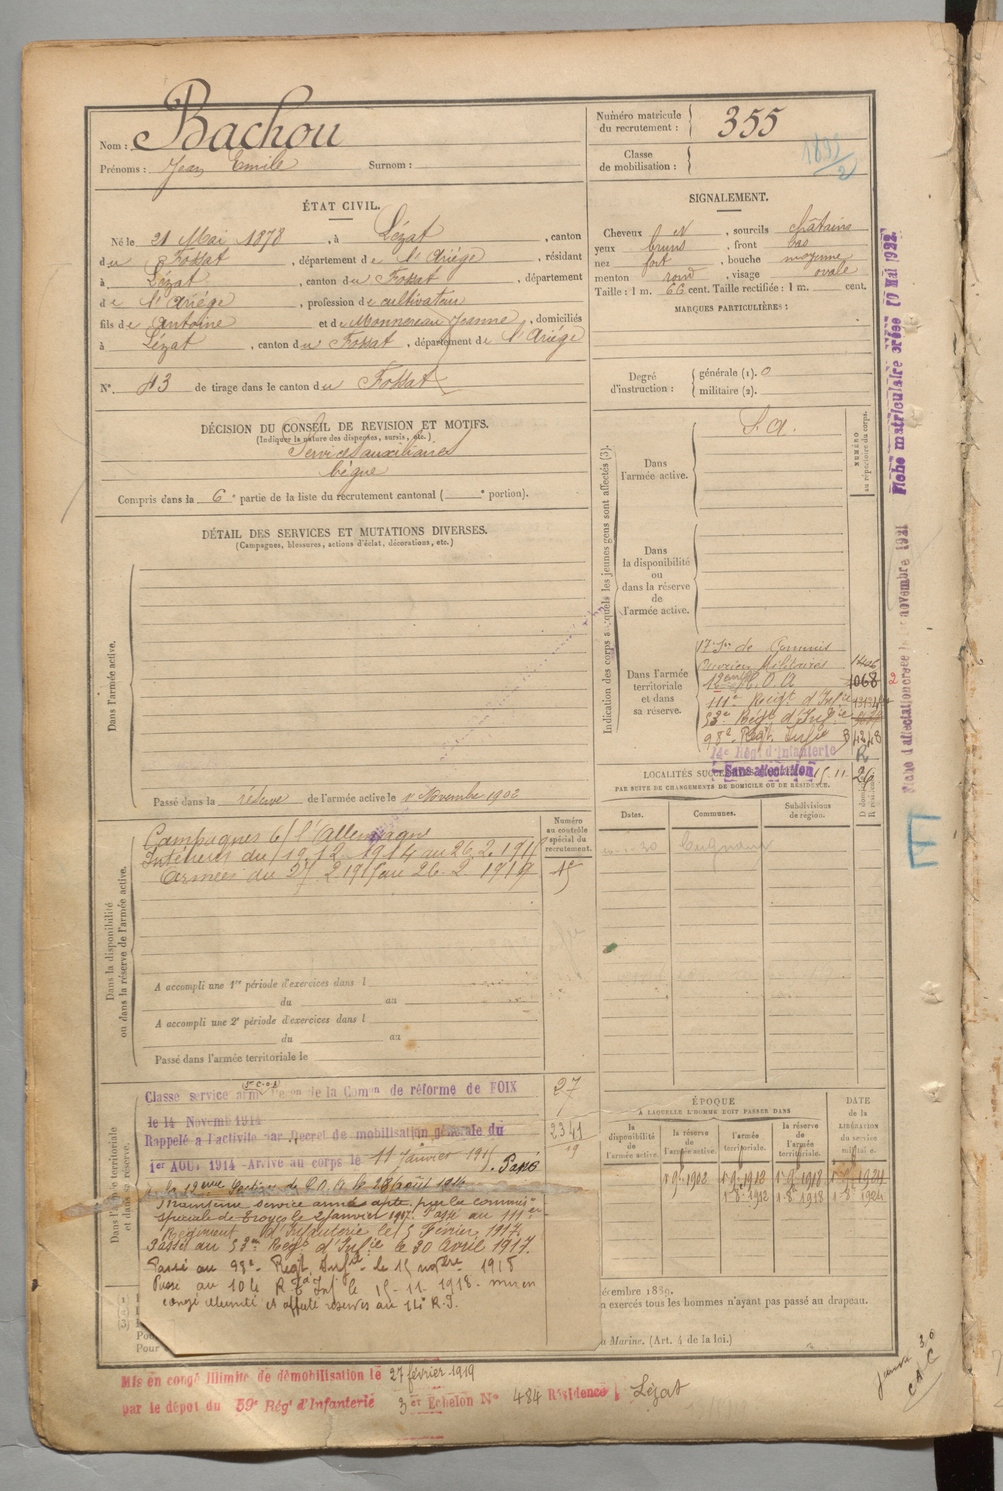 Nom : Bachou
Prénoms : Jean Emile Surnom :
Numéro matricule du recrutement : 355
Classe de mobilisation :
ÉTAT CIVIL.
Né le 21 Mai 1878, à Lézat, canton
du Fossat, département de l'Ariége, résidant
à Lézat, canton du Fossat, département
de l'Ariége, profession de cultivateur
fils de Antoine et de Monnereau Jeanne, domiciliés
à Lézat, canton du Fossat, département de l'Ariége
N° 43 de tirage dans le canton du Fossat
SIGNALEMENT.
Cheveux N, sourcils châtains
yeux bruns, front bas
nez fort, bouche moyenne
menton rond, visage ovale
Taille : 1 m. 66 cent. Taille rectifiée : 1 m. cent.
MARQUES PARTICULIÈRES :
Degré d'instruction : générale (1). 0
militaire (2).
DÉCISION DU CONSEIL DE REVISION ET MOTIFS.
(Indiquer la nature des dispenses, sursis, etc.)
Services auxiliaires
bègue
Compris dans la 6e partie de la liste du recrutement cantonal ( e portion).
DÉTAIL DES SERVICES ET MUTATIONS DIVERSES.
(Campagnes, blessures, actions d'éclat, décorations, etc.)
Dans l'armée active.
Passé dans la réserve de l'armée active le 1er Novembre 1902
Indication des corps auxquels les jeunes gens sont affectés (3).
NUMÉRO au répertoire du corps.
Dans l'armée active.
S.A.
Dans la disponibilité ou dans la réserve de l'armée active.
Dans l'armée territoriale et dans sa réserve.
17e Son de Commis
Ouvriers Militaires
12ème C.O.A 1068
111e Régt d'Infie
53e Régt d'Infie
98e Régt Infie 4248
14e Rég' d'Infanterie R
Sans affectation 15.11. 26
Fiche matriculaire créée 10 Mai 1922.
novembre 1921
Dans la disponibilité ou dans la réserve de l'armée active.
Numéro au contrôle spécial du recrutement.
Campagnes c/ l'Allemagne
Intérieur du 19.12.1914 au 26.2.1915
Armées du 27.2.1915 au 26.2.1919
A accompli une 1re période d'exercices dans l
du au
A accompli une 2e période d'exercices dans l
du au
Passé dans l'armée territoriale le
PAR SUITE DE CHANGEMENTS DE DOMICILE OU DE RÉSIDENCE.
Dates.
Communes.
Subdivisions de région.
D domicile R résidence
Cugnaux
Dans l'armée territoriale et dans sa réserve.
Classé service armé de la Comon de réforme de FOIX 27
le 14 Novemb 1914
Rappelé à l'activité par Décret de mobilisation générale du 2341
1er AOUT 1914 - Arrivé au corps le 11 Janvier 1915. Passé 19
à la 12ème Section de C.O.A. le 28 août 1916
Maintenu service armé apte par la commis°
spéciale de Troyes le 2 janvier 1917. Passé au 111e
Régiment d'Infanterie le 5 Février 1917.
Passé au 53me Régt d'Infie le 30 Avril 1917.
Passé au 98e Regt Infie le 15 novbre 1918
Passé au 104 R.t Inf le 15-11-1918. mis en
congé illimité et affecté réserves au 14e R.I.
ÉPOQUE
À LAQUELLE L'HOMME DOIT PASSER DANS
DATE de la LIBÉRATION du service militaire.
la disponibilité de l'armée active.
la réserve de l'armée active.
l'armée territoriale.
la réserve de l'armée territoriale.
1er 9bre 1902
1er 8bre 1912 1er 8bre 1918 1er 8bre 1924
écembre 1889.
n exercés tous les hommes n'ayant pas passé au drapeau.
a Marine. (Art. 4 de la loi.)
Mis en congé illimité de démobilisation le 27 février 1919
par le dépôt du 59e Rég' d'Infanterie 3er Echelon N° 484 Résidence Lézat